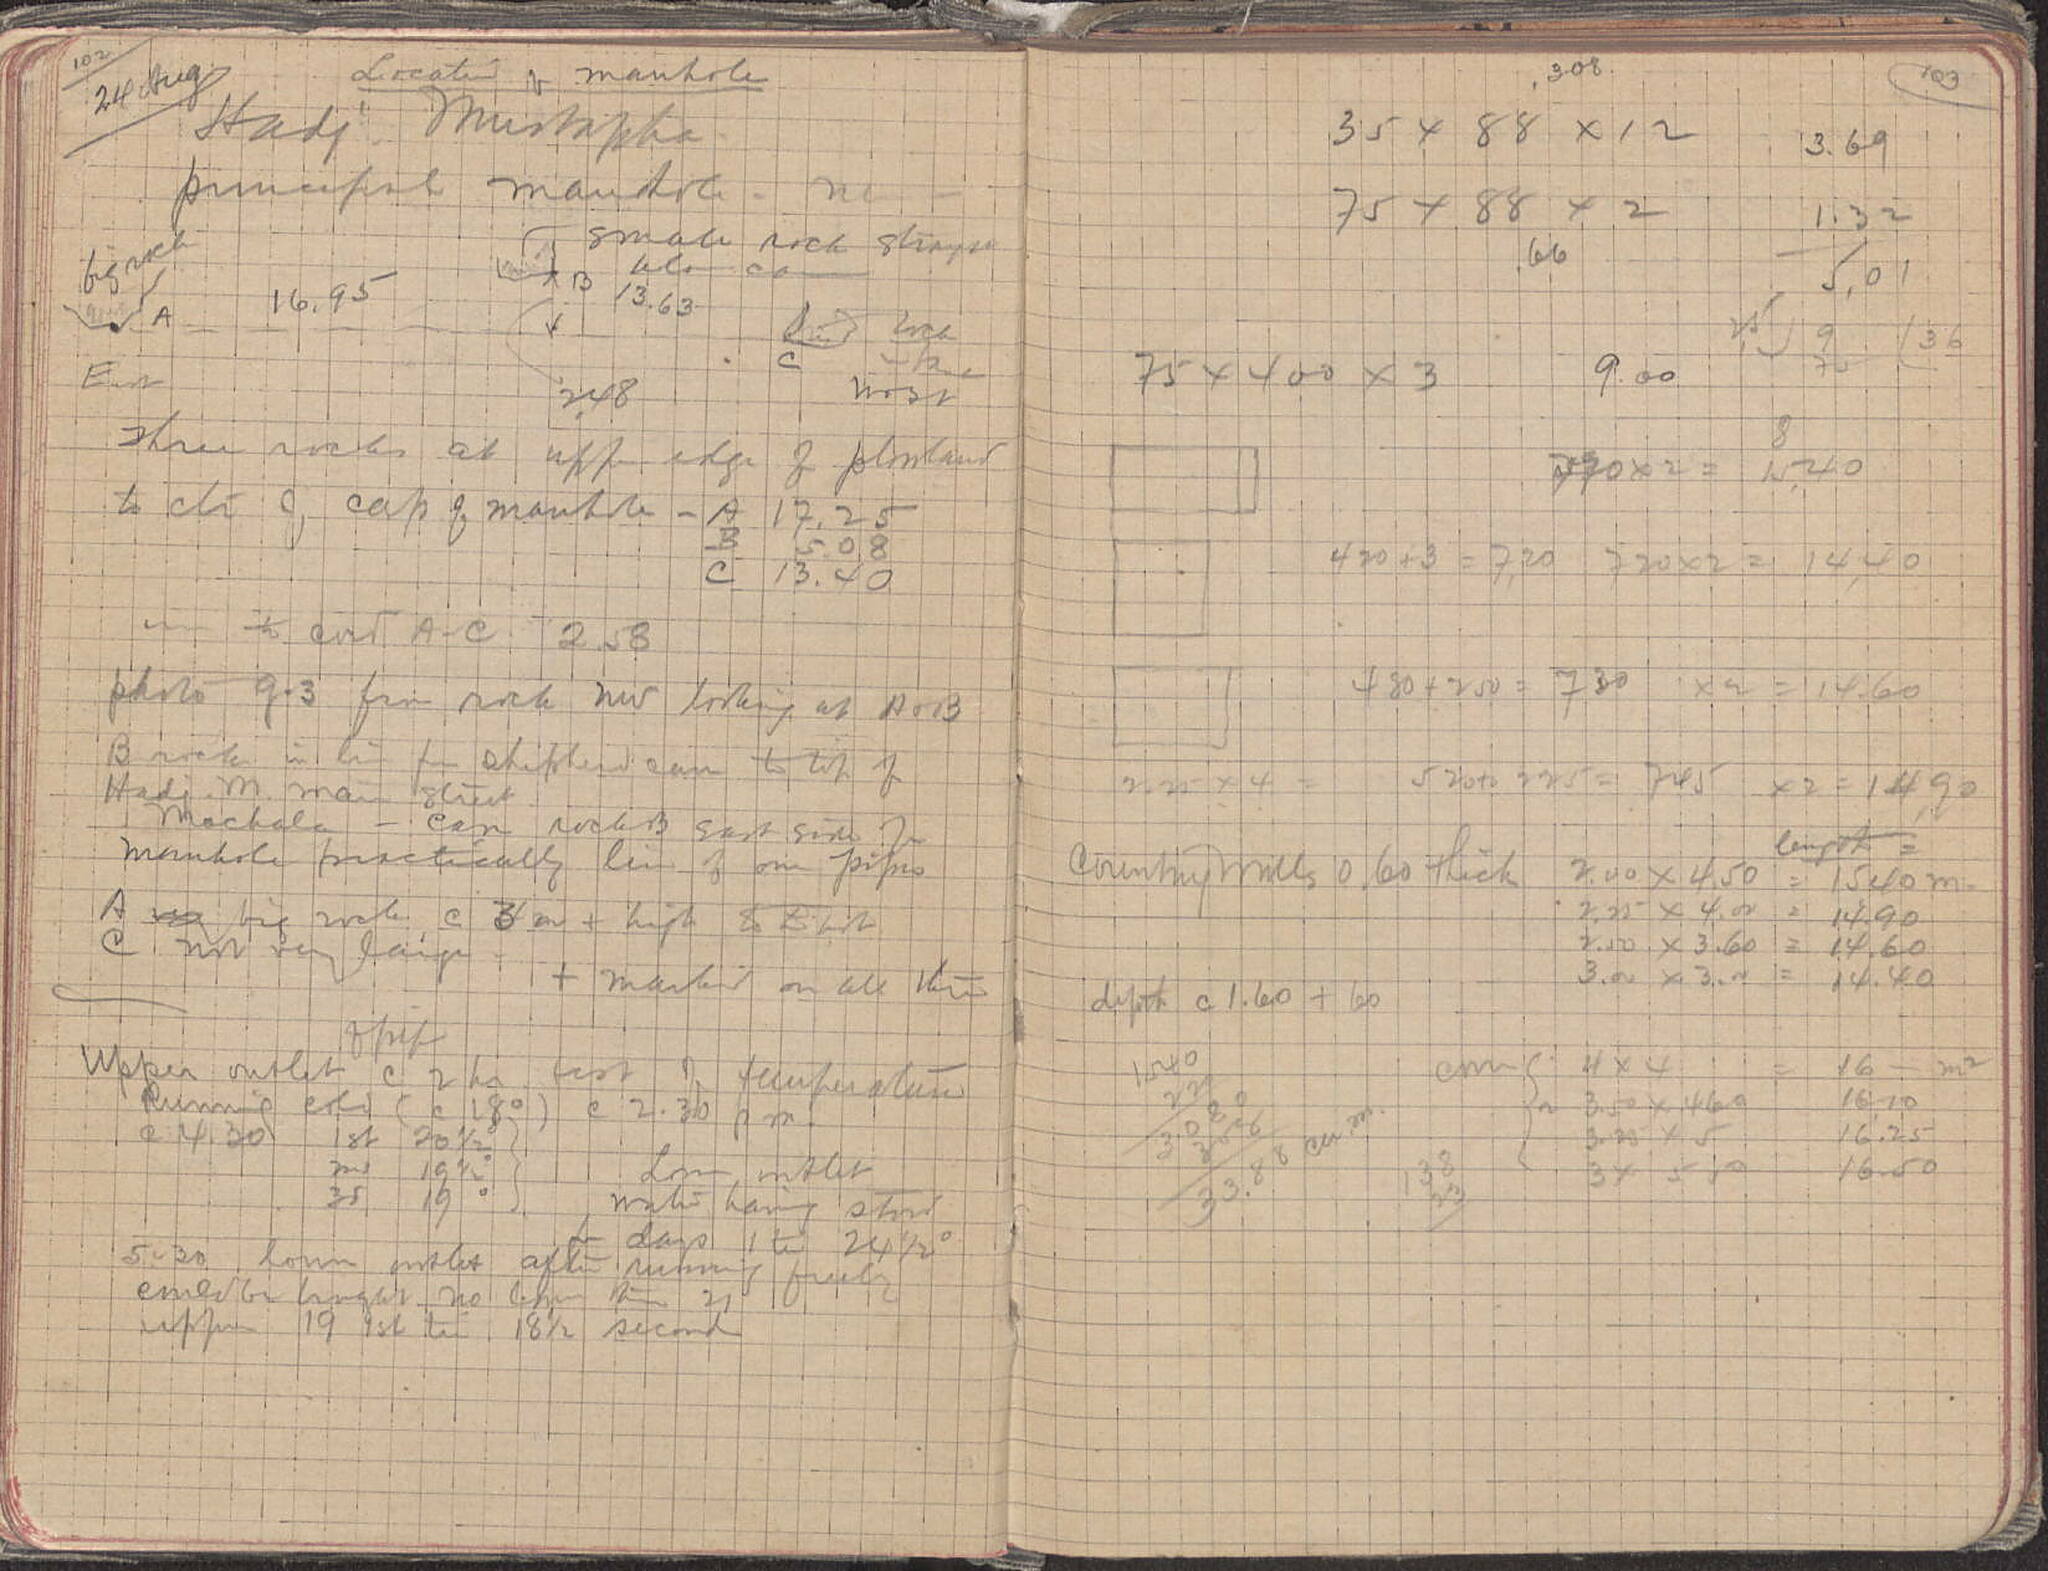 102
24 Aug
Location of manhole
Hadji Mustapha
principal manhole -
small rock shape
big rock
B
13.63
A 16.95
rock
C
East
2.48
West
three rocks at upper edge of plowland
to ctr of cap of manhole - A 17.25
B 5.08
C 13.40
to cord A-C 2.58
photo 9.3 from rock NW looking at A & B
B rock in line from shepherd cave to top of
Hadji M. main street
Machala - cave rock B east side of
manhole practically line of our pipes
A big rock c 3 m + high
C not very large -
+ marked on all three
of pipe
Upper outlet c 2 hr test of temperature
Running cold (c 18°) c 2.30 p m
c 4.30 1st 20 1/2°
19 1/2°
3d 19°
Lower outlet
water having stood
days 1 ti 24 1/2°
5.30 lower outlet after running freely
could be brought no lower than 21
upper 19 1st ti 18 1/2 second
103
.308
35 x 88 x 12 3.69
75 x 88 x 2 1.32
.66
5,01
9 (36
75
75 x 400 x 3 9.00
8
70 x 2 = 15,40
420 + 3 = 7,20 720 x 2 = 14,40
480 + 250 = 730 x 2 = 14.60
2.25 x 4 = 520 + 225 = 745 x 2 = 14,90
length =
Country Mills 0.60 thick 2.00 x 4.50 = 15.40 m.
2.25 x 4.00 = 14.90
2.50 x 3.60 = 14.60
3.00 x 3.00 = 14.40
depth c 1.60 + 60
1540
22
3080
33.88 cu. m.
138
23
4 x 4 = 16 - m²
3.50 x 460 16.10
3.25 x 5 16.25
3 x 5 50 16.50